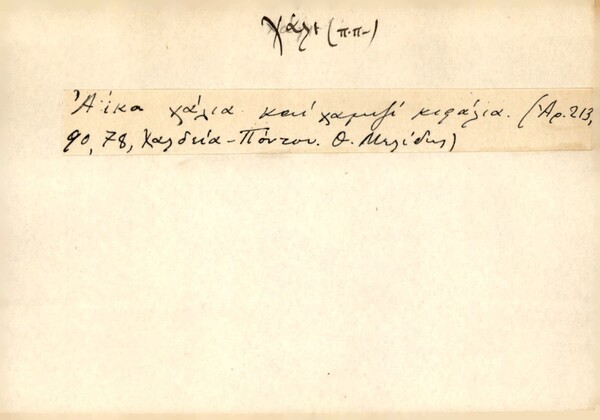 χάλι (π.π.)
Ἀΐκα χάλια καὶ χαμηζὶ κεφάλια. (Ἀρ. 213,
90, 78, Χαλδεία - Πόντου. Θ. Μελίδης)